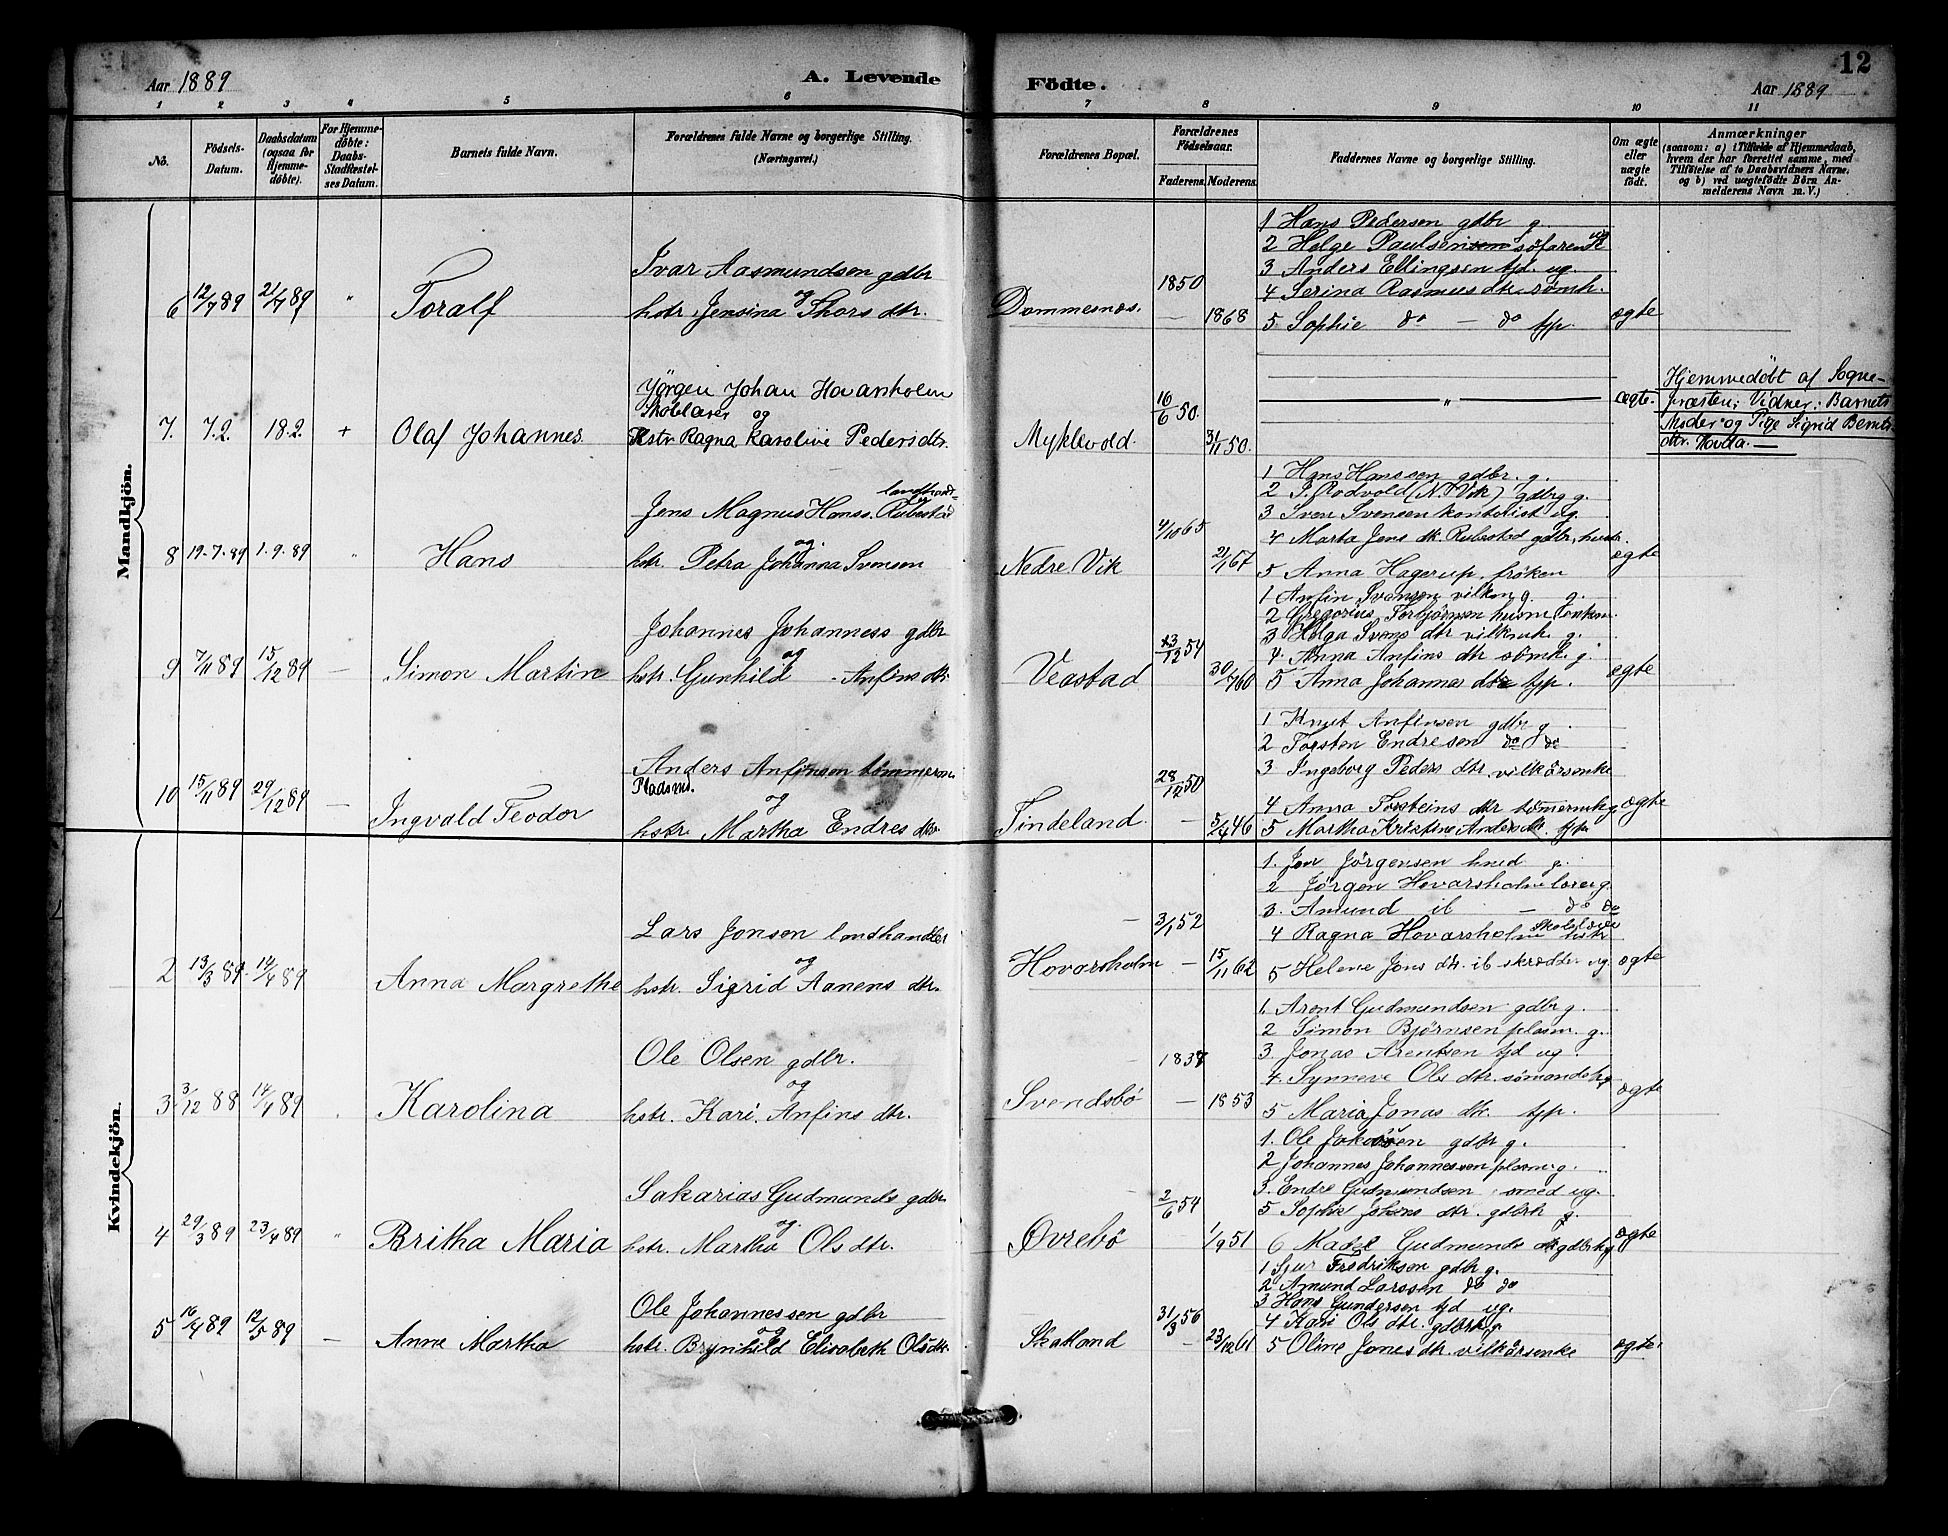 Aar 1889
A. Levende Födte.
12
Aar 1889
1 2 3 4 5 6 7 8 9 10 11
No.
Födsels-Datum.
Daabsdatum (ogsaa for Hjemme-döbte).
For Hjemme-döbte: Daabs-Stadfæstel-ses Datum.
Barnets fulde Navn.
Forældrenes fulde Navne og borgerlige Stilling. (Næringsvei.)
Forældrenes Bopæl.
Forældrenes Födselsaar.
Faderens. Moderens.
Faddernes Navne og borgerlige Stilling.
Om ægte eller uægte födt.
Anmærkninger
(saasom: a) i Tilfælde af Hjemmedaab, hvem der har forrettet samme, med Tilföielse af to Daabsvidners Navne, og b) ved uægtefödte Börn An-melderens Navn m. V.)
Mandkjön.
6 12/7 89 21/7 89 " Toralf
Ivar Aasmundsen gdbr
og
hstr. Jensina Thors dtr.
Dommesnæs.
1850
— 1868
1 Hans Pedersen gdbr g.
2 Helge Paulsen söfarende ug
3 Anders Ellingsen tjd. ug.
4 Serina Rasmus dtr. sömh.
5 Sophie do — do tjp.
ægte
7. 7.2. 18.2. + Olaf Johannes
Jörgen Johan Hovarsholm
Skolelærer og
Hstr Ragna Karoline Pedersdtr.
Myklevold.
16/6 50.
31/11 50.
"
ægte.
Hjemmedöbt af Sogne-
præsten; Vidner: Barnets
Moder og Pige Sigrid Bernts
dtr. Hovda. —
8 19-7-89 1-9-89 " Hans
landhand-
Jens Magnus Hanss. Rubestad
og.
hstr. Petra Johanna Svensen
Nedre Vik
4/10 65
21/1 67
1 Hans Hanssen gdbr. g.
2 P. Rodvold (N. Vik) gdbr g.
3 Sven Svensen kontorist ug
4 Marta Jens dtr. Rubestad gdbr. hustr.
5 Anna Hagerup, fröken
ægte
9 7/11 89 15/12 89 — Simon Martin
Johannes Johanness gdbr
og
hstr. Gunhild Anfins dtr.
Veastad
13/12 54
30/7 60
1 Anfin Svensen vilkm g. g.
2 Gregorius Torbjörnsen
3 Helga Svens dtr vilkmk. g.
4. Anna Anfins dtr sömh. g.
5 Anna Johannes dtr tjp.
ægte
10 15/11 89 29/12 89 — Ingvald Teodor
Anders Anfinsen tömmerm.
Pladsmd.
og
hstr. Martha Endres dtr.
Tindeland.
28/12 50
— 5/4 46
1 Knut Anfinsen gdbr g.
2 Torsten Endresen do do
3 Ingeborg Peders dtr. vilkårsenke
4 Anna Torsteins dtr tömermk g.
5 Martha Kristine Anders dtr. tjp.
ægte
Kvindekjön.
2 13/3 89. 14/4 89 Anna Margrethe
Lars Jonsen landhandler
og
hstr. Sigrid Aanens dtr.
Hovarsholm
3/1 52
— 15/11 62
1. Jon Jörgensen hmd g.
2 Jörgen Hovarsholm lærer g.
3. Amund ib — do do
4 Ragna Hovarsholm Skolelærer hstr
5 Helene Jons dtr. ib skrædder ug
ægte
3 3/12 88 14/4 89 Karolina
Ole Olsen gdbr.
og
hstr. Kari Anfins dtr.
Svendsbö
1837
— 1853
1. Arent Gudmundsen gdbr g.
2 Simon Björnsen plasm. g.
3. Jonas Arentsen tjd ug.
4. Synneve Ols dtr. sömandsk g.
5 Maria Jonas dtr. tjp.
ægte
4 29/3 89 23/4 89 " Britha Maria
Sakarias Gudmunds gdbr
og
hstr. Martha Ols dtr.
Øvrebö
2/6 54
1/9 51
1. Ole Jakobsen gdbr g.
2 Johannes Johannessen plasm g.
3. Endre Gudmundsen smed ug.
5 Sophie Johans dtr. gdbrk g.
6 Madel Gudmunds dtr gdbrk g
ægte
5 16/4 89 12/5 89 — Anne Martha
Ole Johannessen gdbr
og
hstr. Brynhild Elisabeth Olsdtr.
Skatland
31/3 56
— 23/12 61
1 Sjur Fredriksen gdbr g.
2 Amund Larssen do do
3 Hans Gundersen tjd ug.
4 Kari Ols dtr. gdbrk g.
5 Oline Jones dtr. vilkårsenke
ægte.